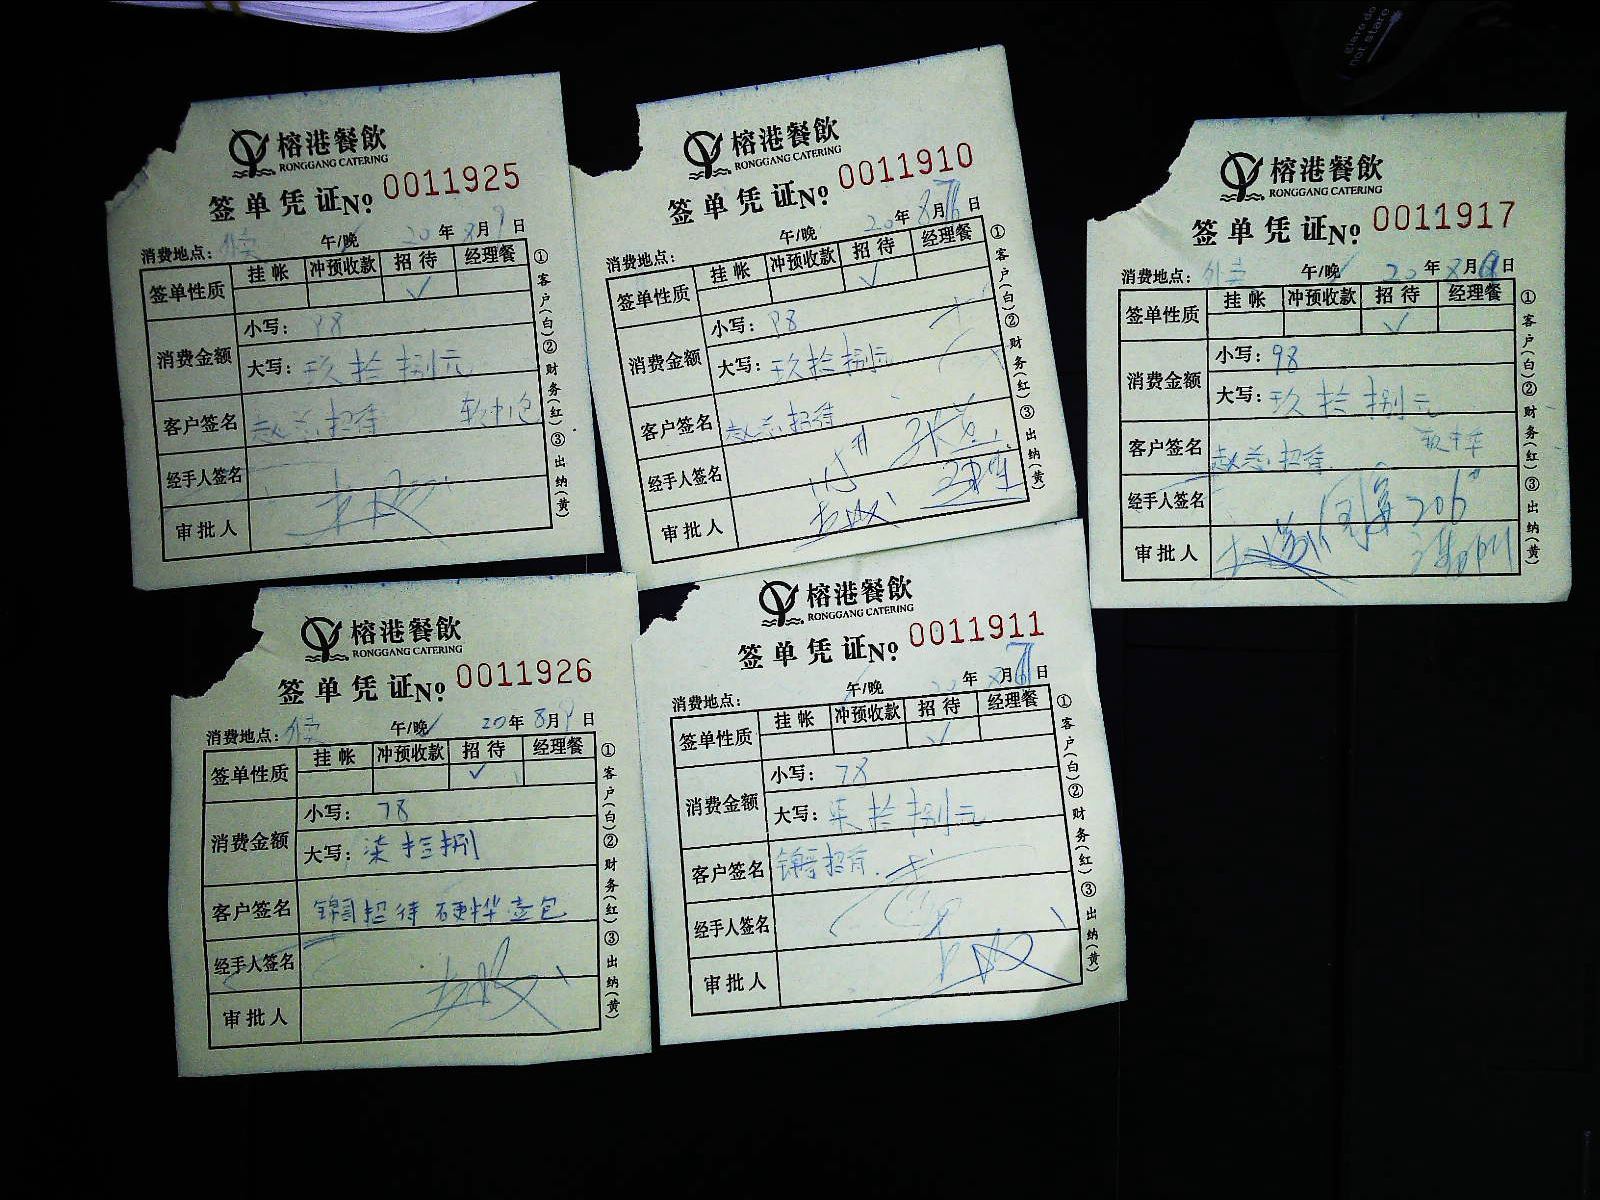 榕港餐飲
RONGGANG CATERING
签单凭证No. 0011925
消费地点：外卖 午/晚 20年8月9日
签单性质 挂帐 冲预收款 招待 经理餐
✓
消费金额 小写：98
大写：玖拾捌元
客户签名 赵总招待
经手人签名
审批人
①客户(白)②财务(红)③出纳(黄)
榕港餐飲
RONGGANG CATERING
签单凭证No. 0011910
消费地点： 午/晚 20年8月日
签单性质 挂帐 冲预收款 招待 经理餐
✓
消费金额 小写：98
大写：玖拾捌元
客户签名 赵总招待
经手人签名
审批人
①客户(白)②财务(红)③出纳(黄)
榕港餐飲
RONGGANG CATERING
签单凭证No. 0011917
消费地点：外卖 午/晚 20年8月9日
签单性质 挂帐 冲预收款 招待 经理餐
✓
消费金额 小写：98
大写：玖拾捌元
客户签名 赵总招待
经手人签名 206
审批人
①客户(白)②财务(红)③出纳(黄)
榕港餐飲
RONGGANG CATERING
签单凭证No. 0011926
消费地点：外卖 午/晚 20年8月9日
签单性质 挂帐 冲预收款 招待 经理餐
✓
消费金额 小写：78
大写：柒拾捌
客户签名 招待 硬 壹包
经手人签名
审批人
①客户(白)②财务(红)③出纳(黄)
榕港餐飲
RONGGANG CATERING
签单凭证No. 0011911
消费地点： 午/晚 20年8月日
签单性质 挂帐 冲预收款 招待 经理餐
✓
消费金额 小写：78
大写：柒拾捌元
客户签名 招待
经手人签名
审批人
①客户(白)②财务(红)③出纳(黄)